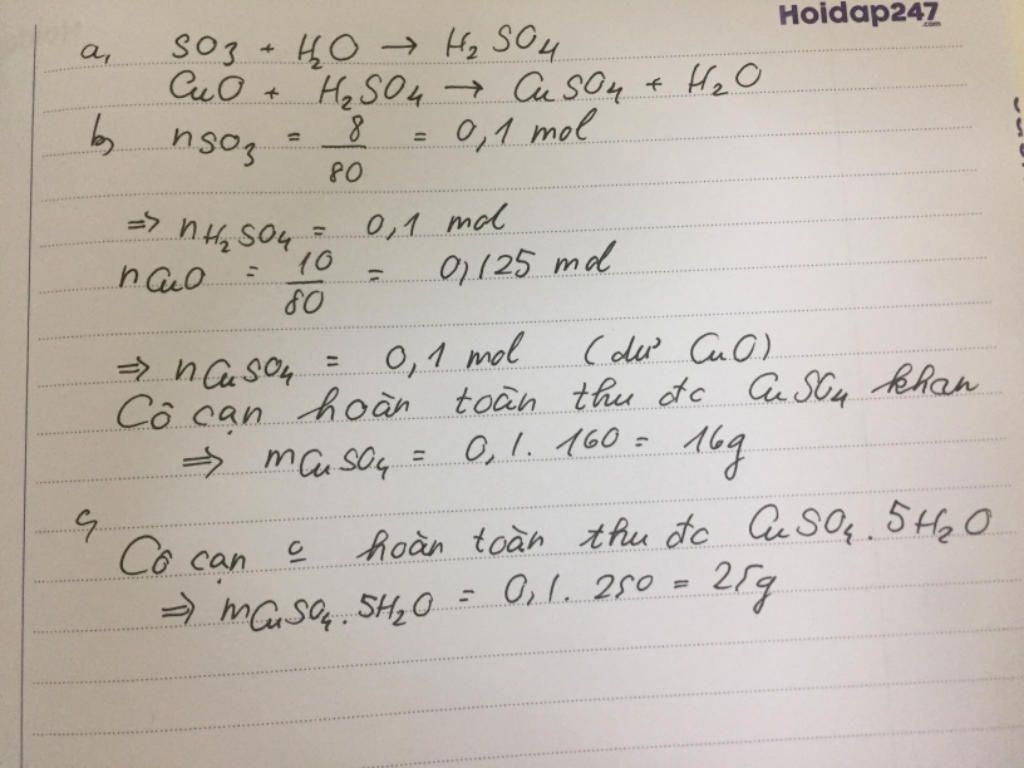 Hoidap247
.com
a, SO3 + H2O → H2SO4
CuO + H2SO4 → CuSO4 + H2O
b, nSO3 = 8/80 = 0,1 mol
=> nH2SO4 = 0,1 mol
nCuO = 10/80 = 0,125 mol
=> nCuSO4 = 0,1 mol (dư CuO)
Cô cạn hoàn toàn thu đc CuSO4 khan
=> mCuSO4 = 0,1. 160 = 16g
c,
Cô cạn hoàn toàn thu đc CuSO4. 5H2O
=> mCuSO4. 5H2O = 0,1. 250 = 25g